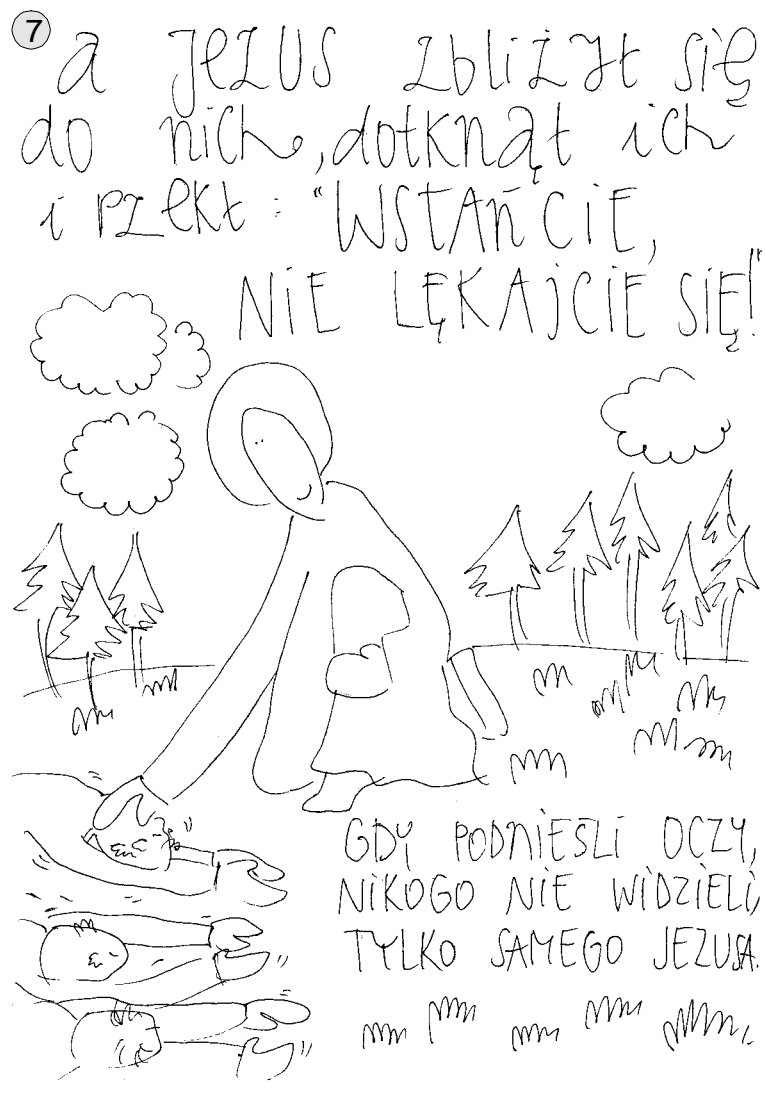 7
a JEZUS zbliżył się
do nich, dotknął ich
i rzekł: "WSTAŃCIE,
NIE LĘKAJCIE SIĘ!"
GDY PODNIEŚLI OCZY,
NIKOGO NIE WIDZIELI,
TYLKO SAMEGO JEZUSA.